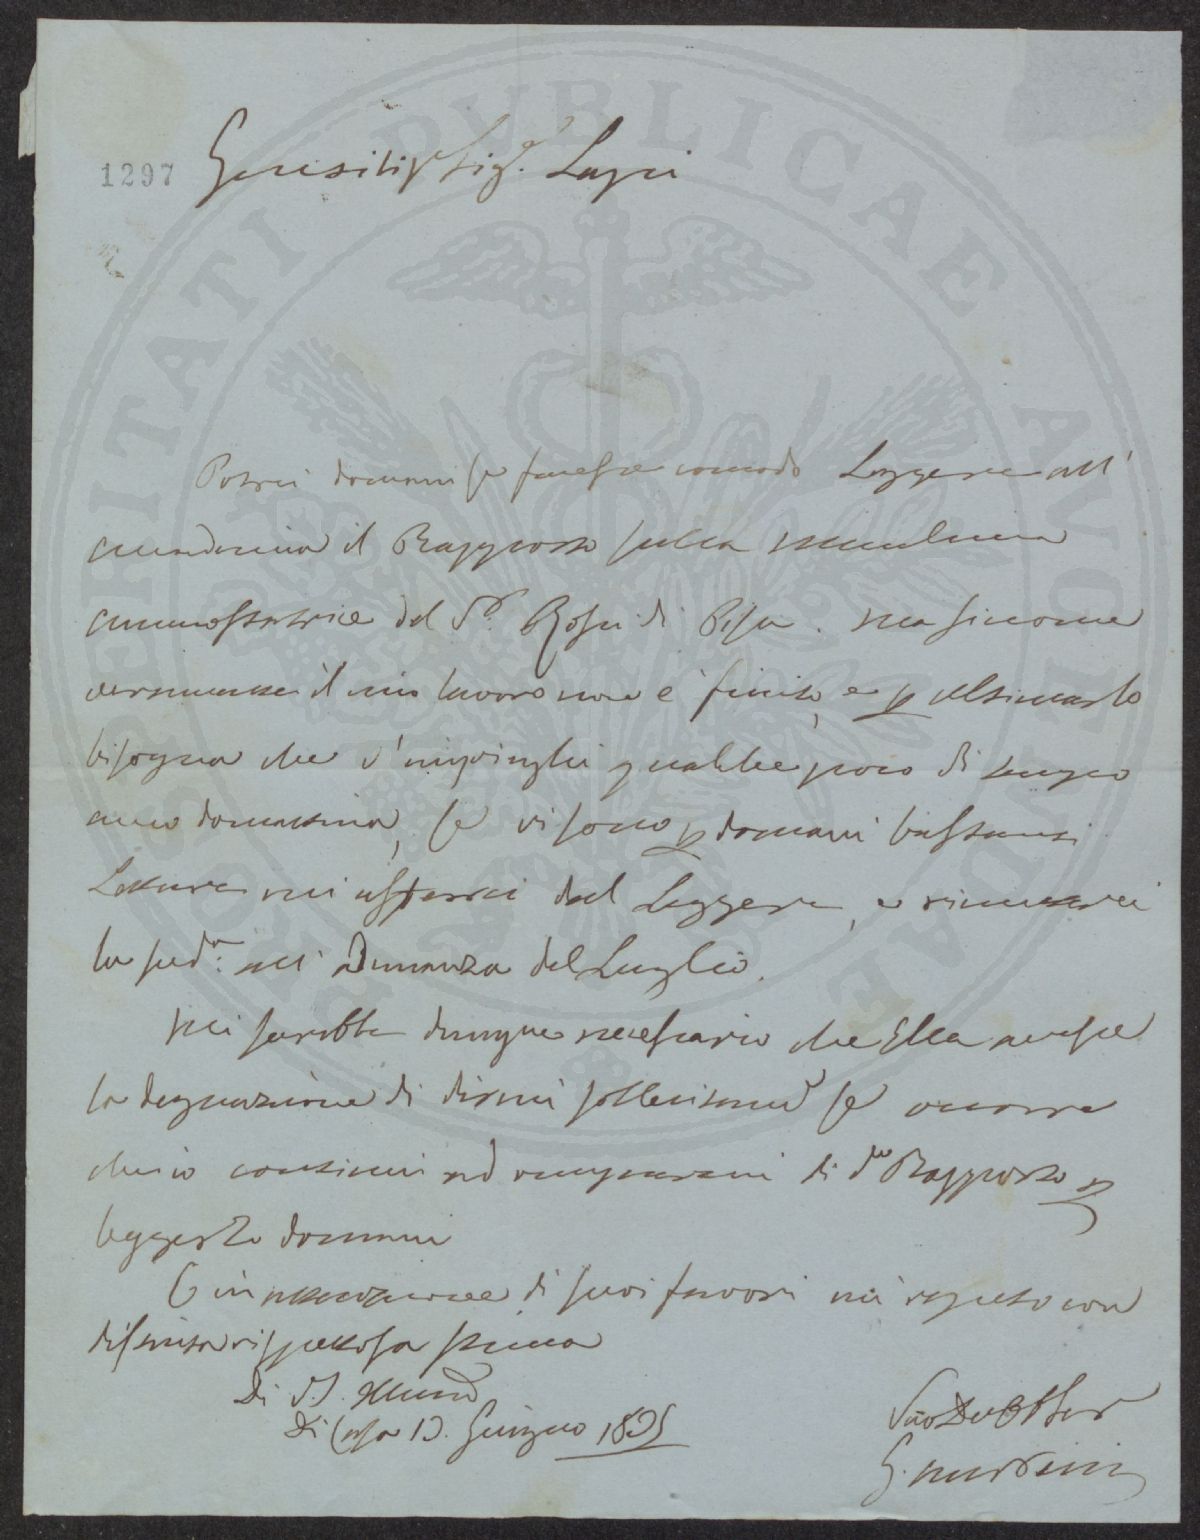 1297
Gentiliss.º Sig.e Lapi
Potrei domani se facesse comodo Leggere all'
accademia il Rapporto sulla macchina
ammostatrice del S.r di Pisa. ma siccome
veramente il mio lavoro non è finito, e p ultimarlo
bisogna che v'impieghi qualche poco di tempo
domattina, se vi sono p domani bastanti
Letture mi asterrei dal Leggere, e rimetterei
la sud.a: all'Adunanza del Luglio.
Mi sarebbe dunque necessario che Ella avesse
la degnazione di dirmi sollecitam.e se occorre
che io continui ad occuparmi di d.o Rapporto p
leggerlo domani
E in attenzione di suoi favori mi reputo con
distinta rispettosa stima
Di V.S. Illma
Di Casa 13. Giugno 1835
Suo Dev Obb Ser
G.
PROSPERITATI PVBLICAE AVGENDAE